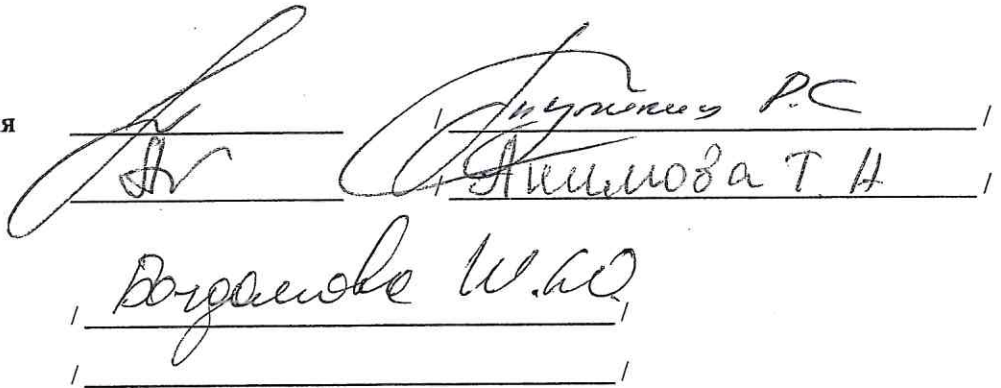 я / Р.С /
/ Акимова Т.Н /
/ Богданова И.Ю. /
/ /